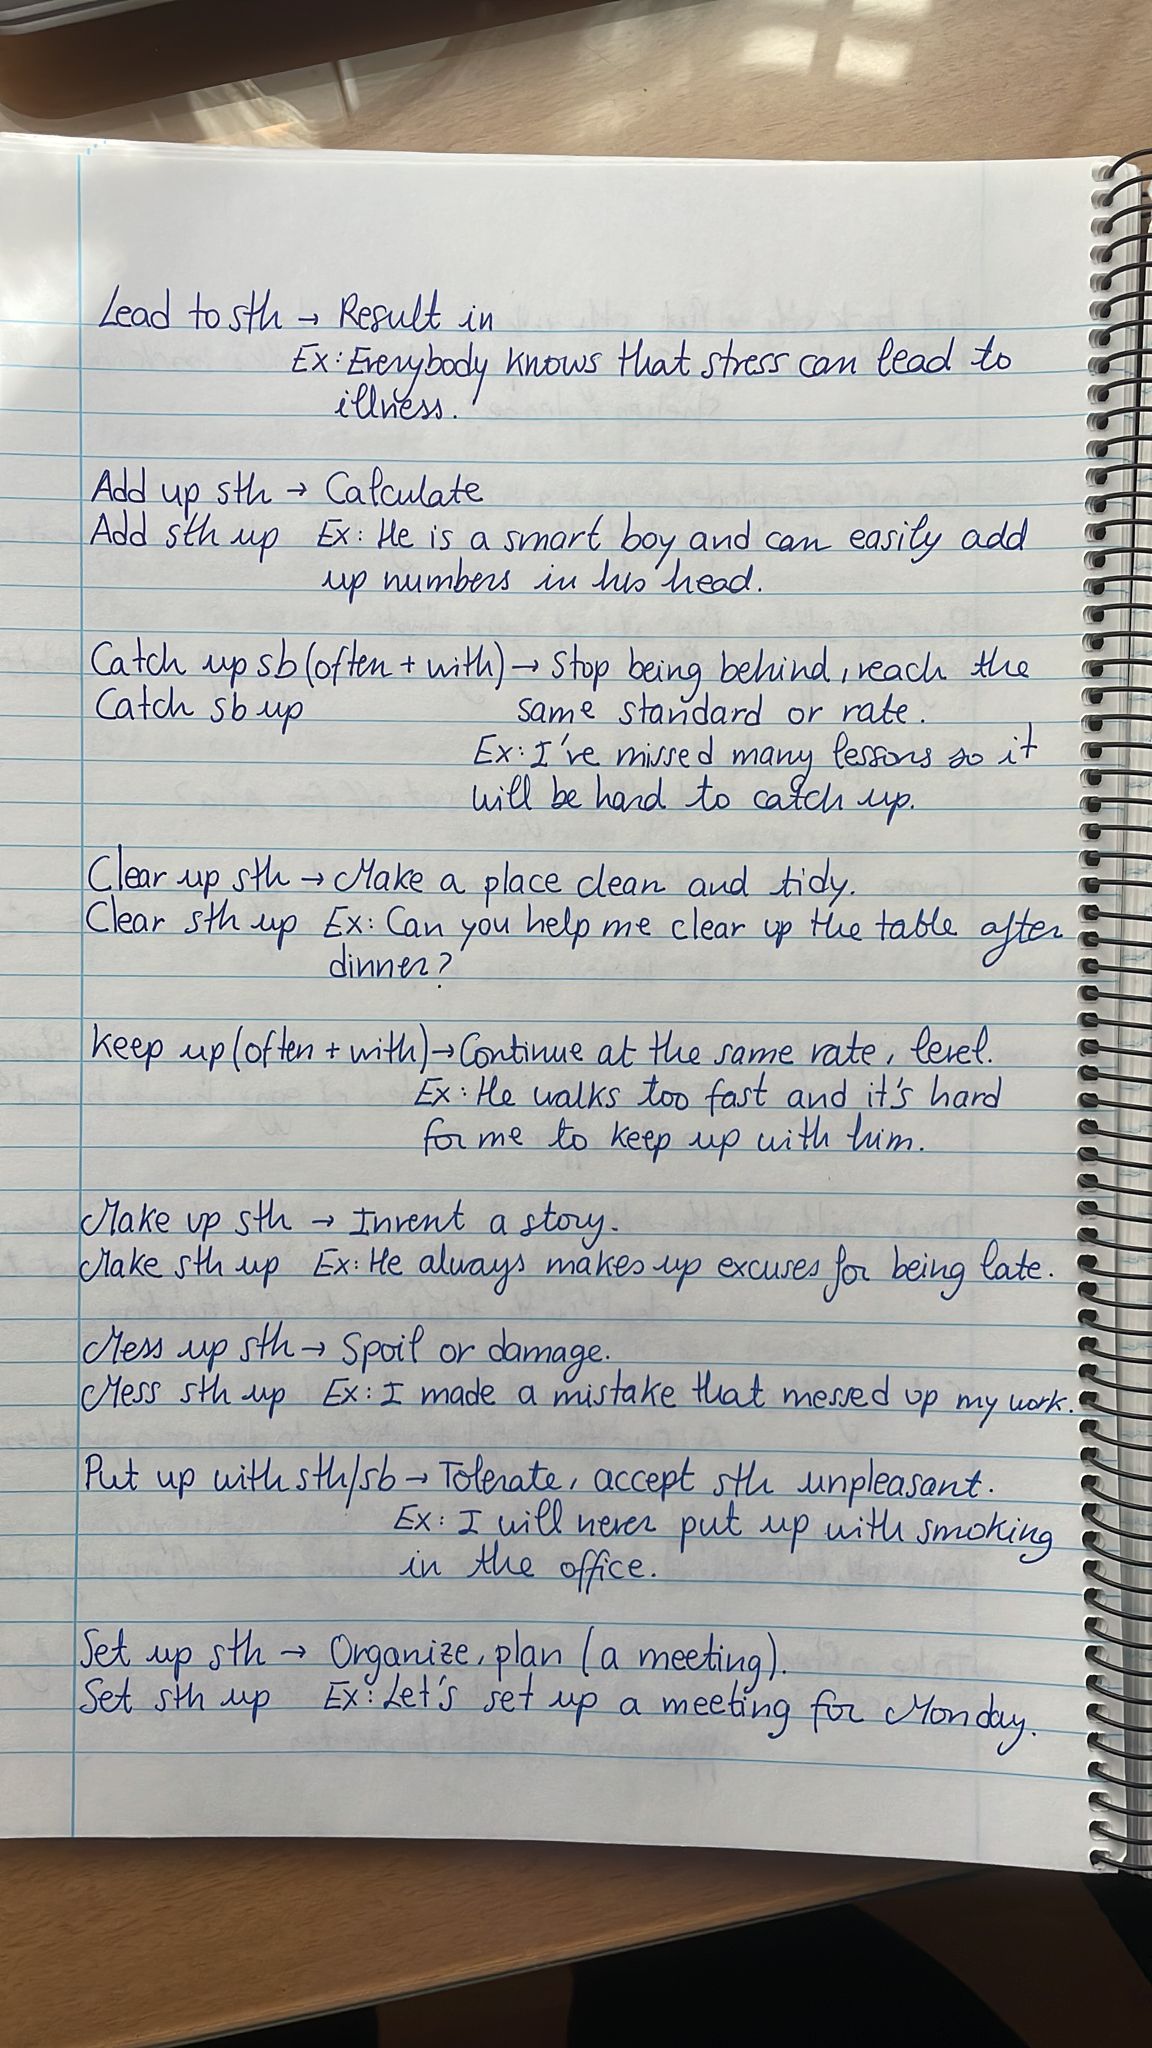 Lead to sth → Result in
Ex: Everybody knows that stress can lead to
illness.
Add up sth → Calculate
Add sth up Ex: He is a smart boy and can easily add
up numbers in his head.
Catch up sb (often + with) → Stop being behind, reach the
Catch sb up same standard or rate.
Ex: I've missed many lessons so it
will be hard to catch up.
Clear up sth → Make a place clean and tidy.
Clear sth up Ex: Can you help me clear up the table after
dinner?
Keep up (often + with) → Continue at the same rate, level.
Ex: He walks too fast and it's hard
for me to keep up with him.
Make up sth → Invent a story.
Make sth up Ex: He always makes up excuses for being late.
Mess up sth → Spoil or damage.
Mess sth up Ex: I made a mistake that messed up my work.
Put up with sth/sb → Tolerate, accept sth unpleasant.
Ex: I will never put up with smoking
in the office.
Set up sth → Organize, plan (a meeting).
Set sth up Ex: Let's set up a meeting for Monday.